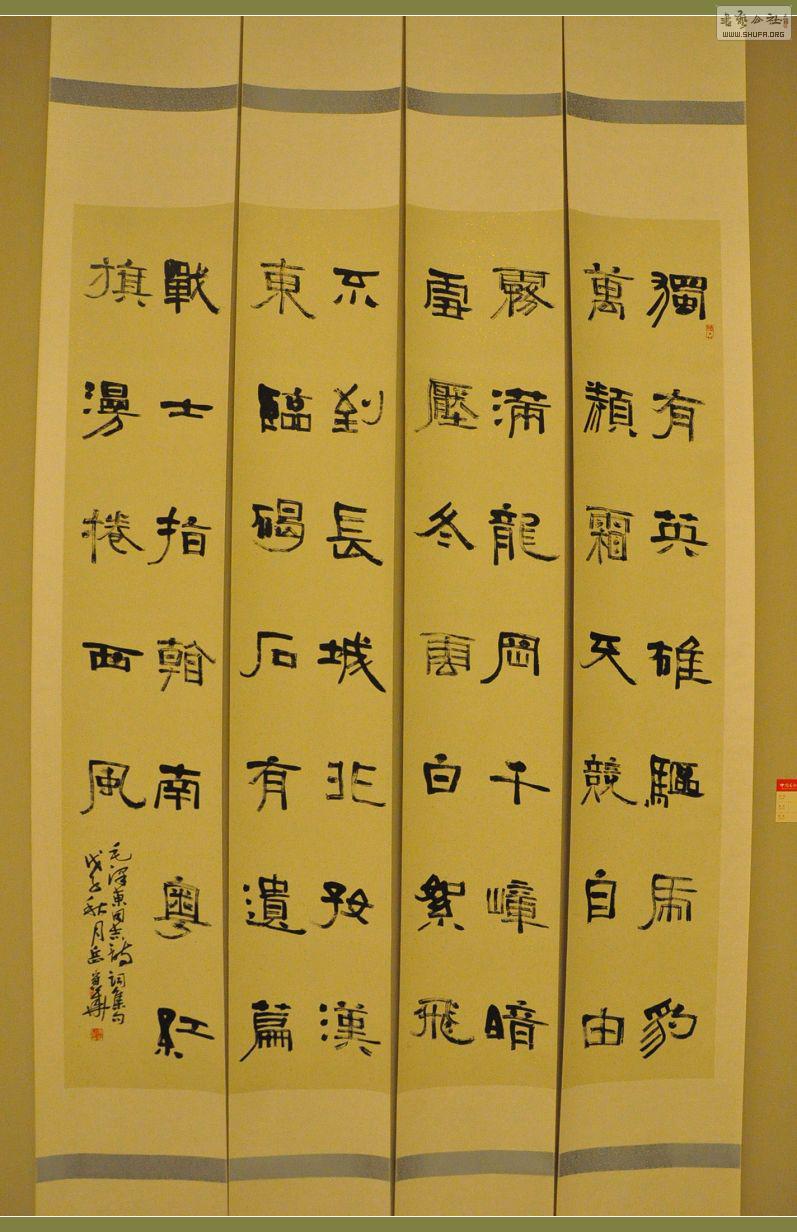 獨有英雄驅虎豹
萬類霜天競自由
霧滿龍岡千嶂暗
雪壓冬雲白絮飛
不到長城非好漢
東臨碣石有遺篇
戰士指看南粵紅
旗漫捲西風
毛澤東同志詩詞集句
戊子秋月岳
書藝公社
WWW.SHUFA.ORG